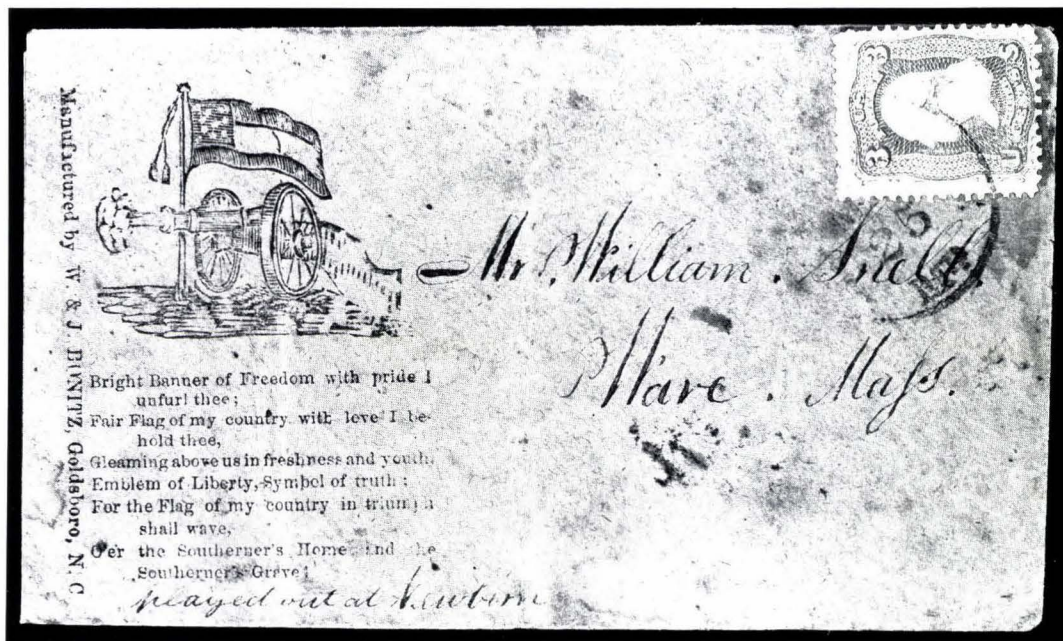 Manufactured by W. & J. BONITZ, Goldsboro, N. C
3 3
U
25
Mr. William. Snell.
Ware. Mass.
Bright Banner of Freedom with pride I
unfurl thee;
Fair Flag of my country with love I be-
hold thee,
Gleaming above us in freshness and youth.
Emblem of Liberty, Symbol of truth;
For the Flag of my country in triumph
shall wave,
O'er the Southerner's Home and the
Southerner's Grave;
played out at Newbern